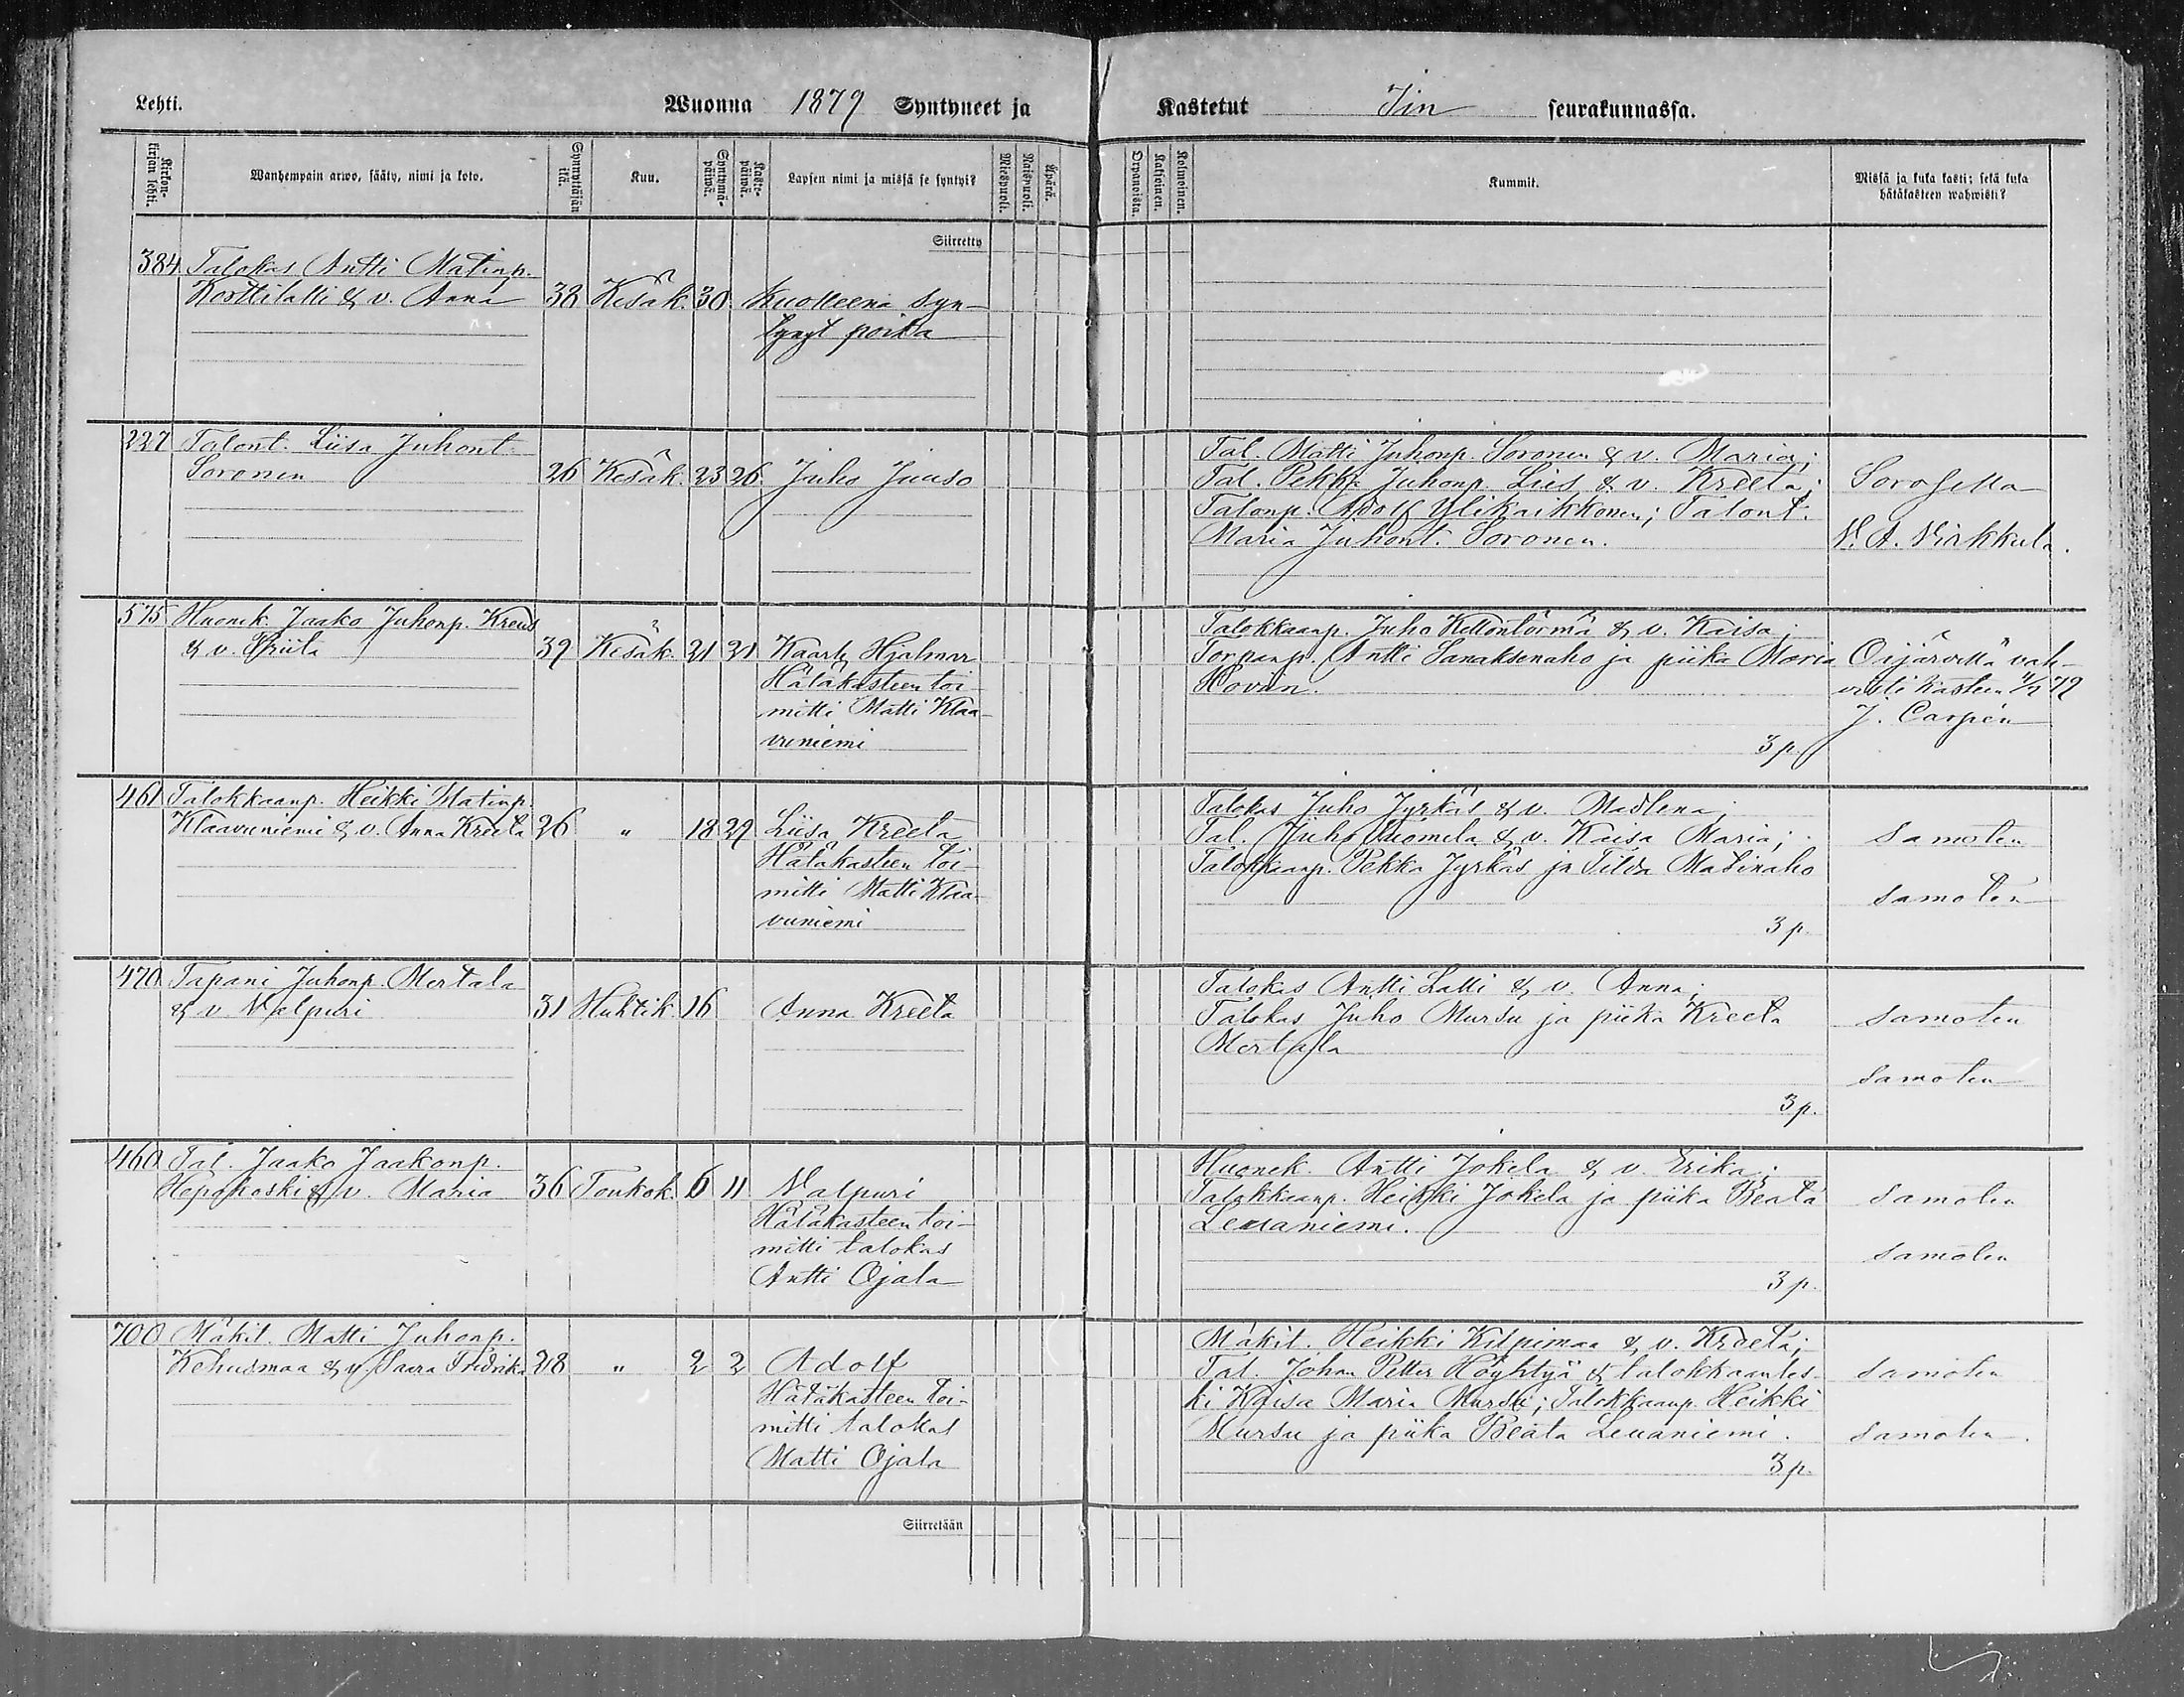 Lehti.
Wuonna 1879 Syntyneet ja
Kastetut Iin seurakunnassa.
Kirkonkirjan lehti.
Wanhempain arwo, sääty, nimi ja koto.
Synnyttäjän ikä.
Kuu.
Syntymäpäiwä.
Kastepäiwä.
Lapsen nimi ja missä se syntyi?
Miespuoli.
Naispuoli.
Äpärä.
Orpanoista.
Kaksoinen.
Kolmoinen.
Kummit.
Missä ja kuka kasti; sekä kuka
hätäkasteen wahwisti?
Siirretty
384 Talokas Antti Matinp.
Korttilatti & v. Anna 38 Kesäk. 30 Kuolleena syn-
tynyt poika
227 Talont. Liisa Juhont.
Soronen 26 Kesäk. 23 26 Juho Juuso
Tal. Matti Juhonp. Soronen & v. Maria;
Tal. Pekka Juhonp. Liis & v. Kreeta;
Talonp. Adolf Ylikaikkonen; Talont.
Maria Juhont. Soronen.
Sorosella
N. A. Virkkula.
575 Huonek. Jaako Juhonp. Kreus
& v. Priita 39 Kesäk. 21 21 Kaarle Hjalmar
Hätäkasteen toi-
mitti Matti Klaa-
vuniemi
Talokkaanp. Juho Kellontörmä & v. Kaisa;
Torpanp. Antti Sanaksenaho ja piika Maria
Hovin.
3 p.
Oijärvellä vah-
visti kasteen 4/7 79
J. Carpén
461 Talokkaanp. Heikki Matinp.
Klaavuniemi & v. Anna Kreeta 26 " 18 29 Liisa Kreeta
Hätäkasteen toi-
mitti Matti Klaa-
vuniemi
Talokas Juho Jyrkäs & v. Madlena;
Tal. Juho Tuomela & v. Kaisa Maria;
Talokkaanp. Pekka Jyrkäs ja Tilda Matinaho
3 p.
Samoten
samoten
470 Tapani Juhonp. Mertala
& v. Valpuri 31 Huhtik. 16 Anna Kreeta
Talokas Antti Latti & v. Anna;
Talokas Juho Mursu ja piika Kreeta
Mertala
3 p.
Samoten
samoten
460 Tal. Jaako Jaakonp.
Hepokoski & v. Maria 36 Toukok. 6 11 Valpuri
Hätäkasteen toi-
mitti talokas
Antti Ojala
Huonek. Antti Jokela & v. Erika;
Talokkaanp. Heikki Jokela ja piika Beata
Leuaniemi.
3 p.
Samoten
samoten
700 Mäkit. Matti Juhonp.
Kehusmaa & v. Saara Fredrika 28 " 2 2 Adolf
Hätäkasteen toi-
mitti talokas
Matti Ojala
Mäkit. Heikki Kilpimaa & v. Kreeta;
Tal. Johan Petter Höyhtyä & talokkaanles-
ki Kaisa Maria Mursu; Talokkaanp. Heikki
Mursu ja piika Beata Leuaniemi.
3 p.
samoten
samoten.
Siirretään